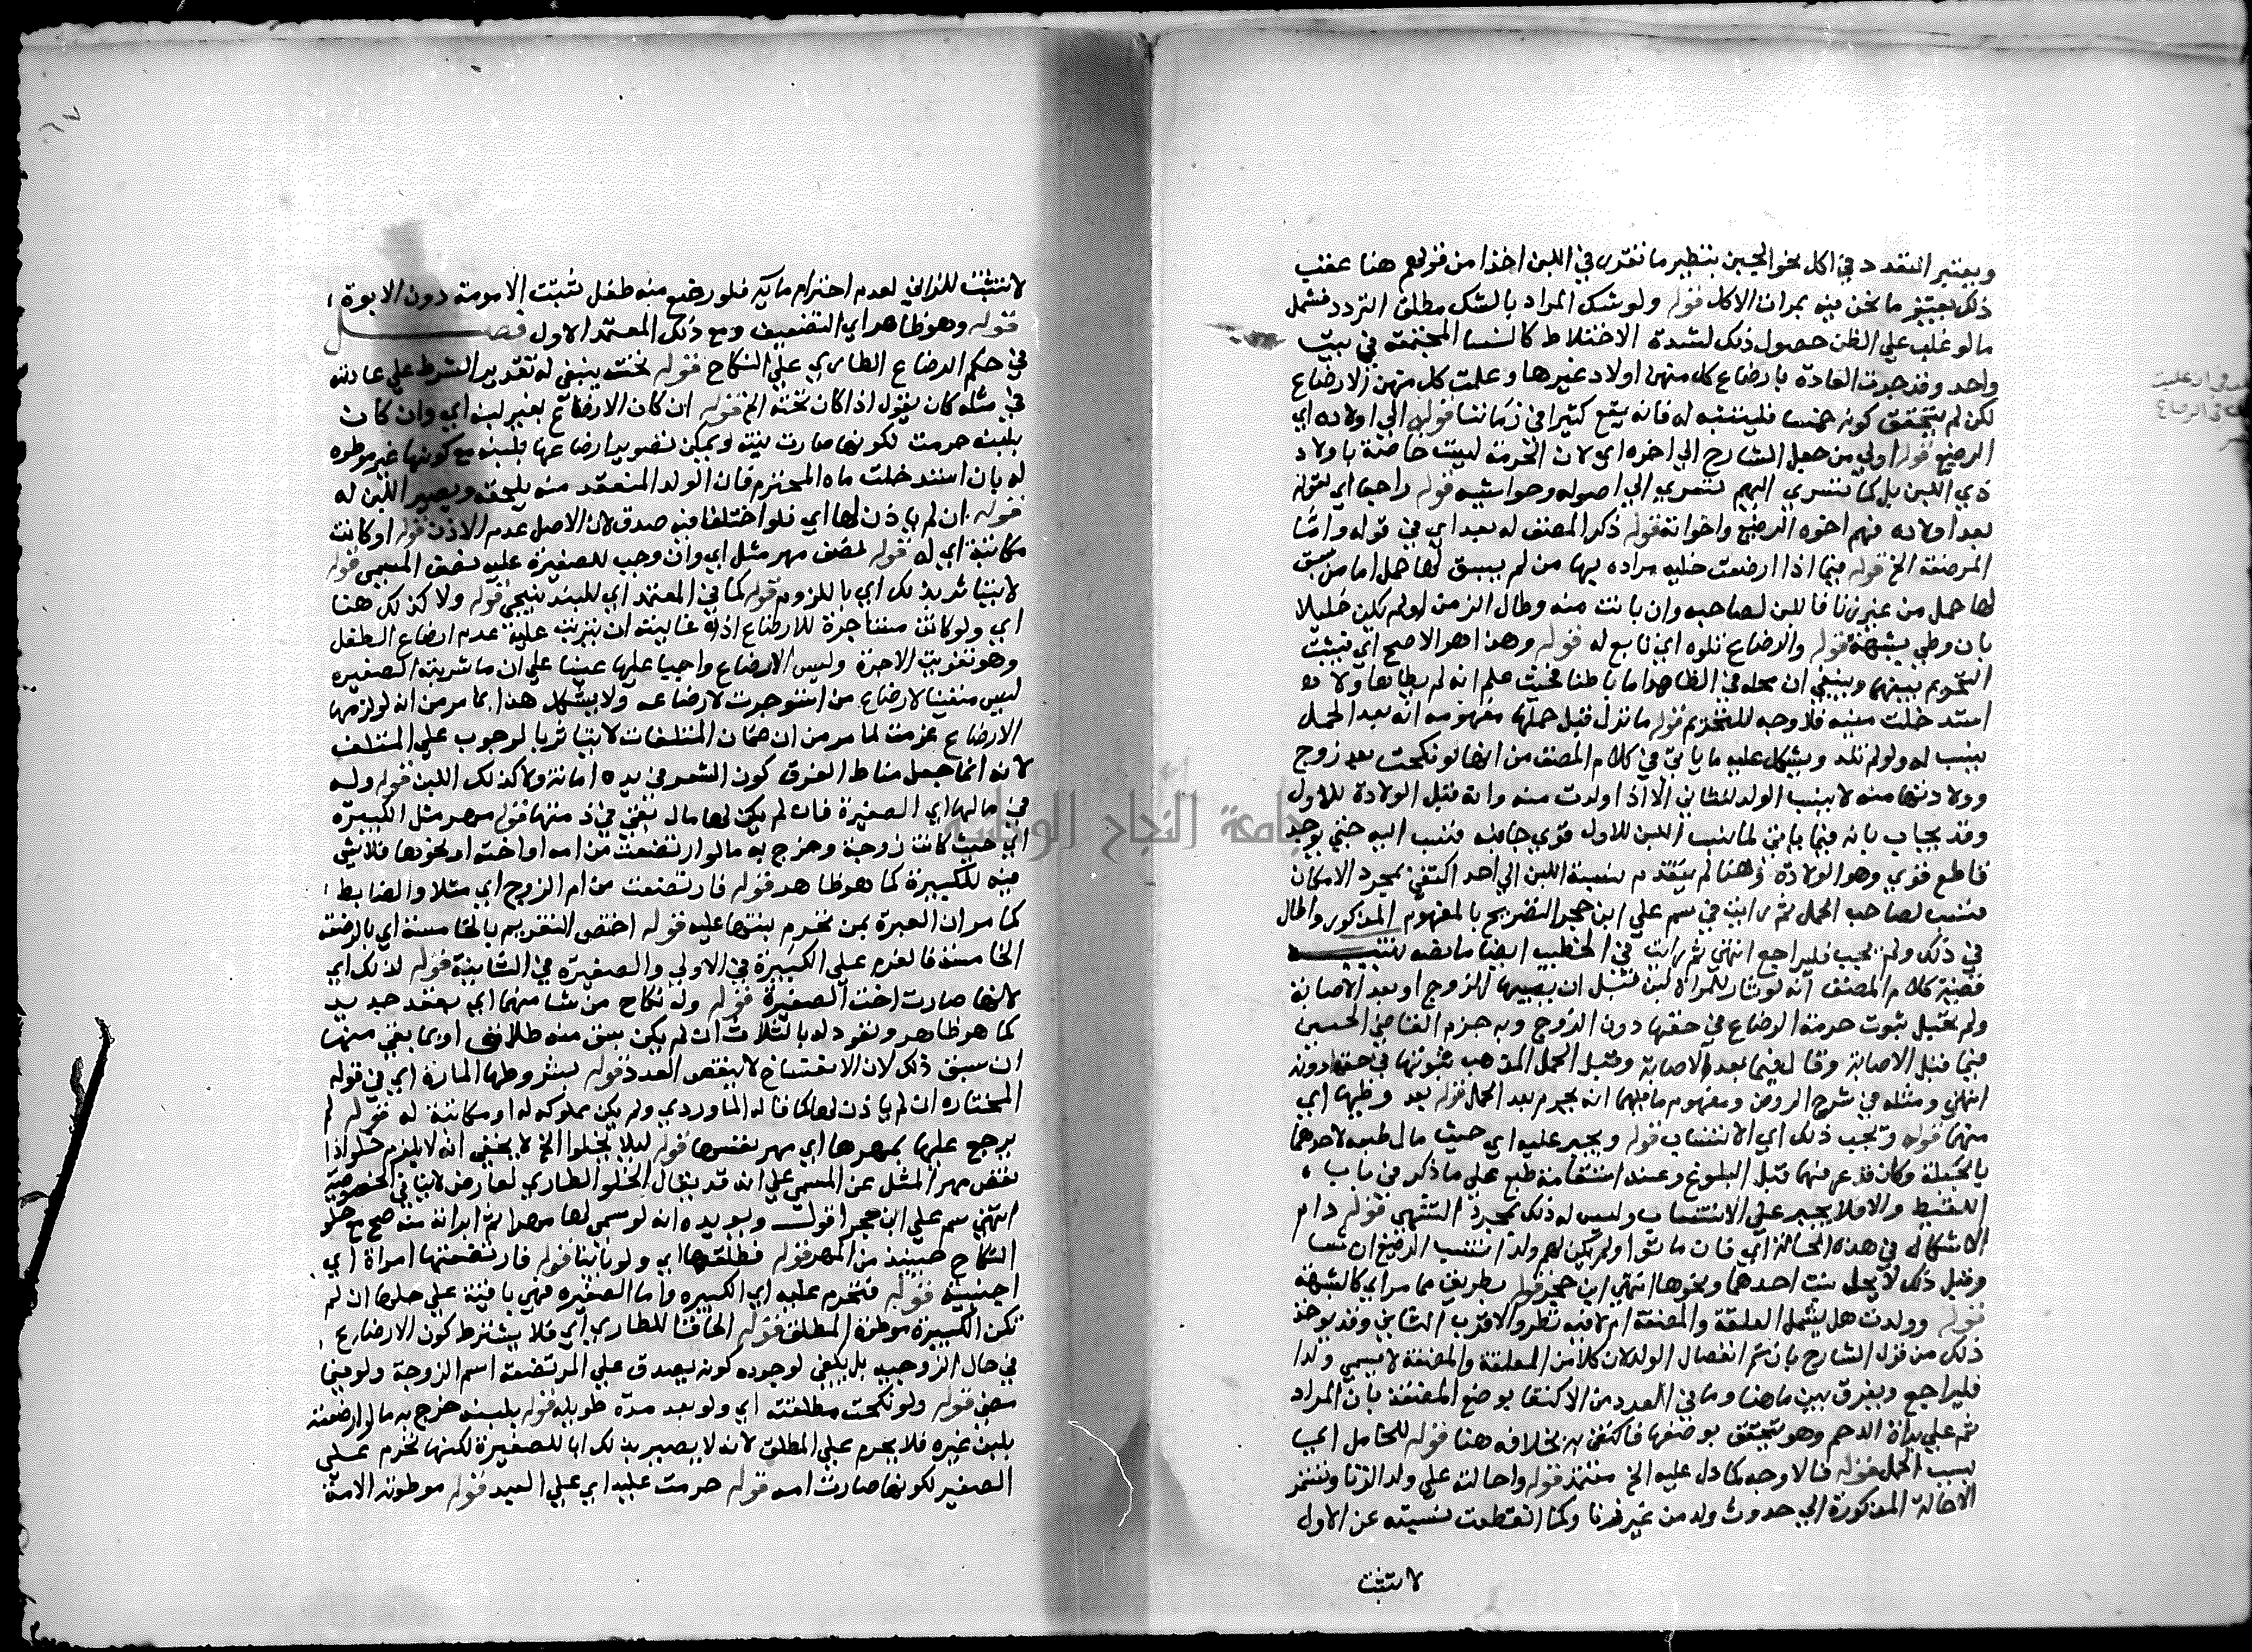 ويعتبر التعدد في اكل نحو الجبن بنظير ما تقرر في اللبن اخذا من قولهم هنا عقب
ذلك يعتبر ما نحن فيه بمرات الاكل قوله ولو شك المراد بالشك مطلق التردد فشمل
ما لو غلب على الظن حصول ذلك لشدة الاختلاط كالنسا المجتمعة في بيت
واحد وقد جرت العادة بارضاع كل منهن اولاد غيرها وعلمت كل منهن الارضاع
لكن لم يتحقق كونه خمسا فليتنبه له فانه يقع كثيرا في زماننا قوله الي اولاده اي
الرضيع قوله اولي من جعل الشارح الي اخره اي لان الحرمة ليست خاصة باولاد
ذي اللبن بل كما تسري اليهم تسري الي اصوله وحواشيه قوله راجعا اي لقوله
بعد اولاده فهم اخوة الرضيع واخواته قوله ذكر المصنف له بعد اي في قوله واما
المرضعة الخ قوله فيما اذا ارضعت خلية مراده بها من لم يسبق لها حمل اما من سبق
لها حمل من غير زنا فاللبن لصاحبه وان بانت منه وطال الزمن او لم تكن خليلا
بان وطي بشبهة قوله والارضاع تلوه اي تابع له قوله وهذا هو الاصح اي تثبت
التحريم بينهما وينبغي ان محله في الظاهر اما باطنا فحيث علم انه لم يطاها ولا
استدخلت منيه فلا وجه للتحريم قوله ما نزل قبل حملها مفهومه انه بعد الحمل
ينسب له ولو لم تلد ويشكل عليه ما ياتي في كلام المصنف من انها لو نكحت بعد زوج
وولادتها منه لا ينسب الولد للثاني الا اذا ولدت منه وانه قبل الولادة للاول
وقد يجاب بانه فيما ياتي لما نسب اللبن للاول قوي جانبه فنسب اليه حتي يوجد
قاطع قوي وهو الولادة وهنا لم يتقدم نسبة اللبن الي احد اكتفي بمجرد الامكان
فنسب لصاحب الحمل ثم رايت في سم علي ابن حجر التصريح بالمفهوم المذكور واطال
في ذلك ولم يجب فليراجع انتهي ثم رايت في الخطيب ايضا ما نصه تنبيه
قضية كلام المصنف انه لو ثار للمراة لبن قبل ان يصيبها الزوج او بعد الاصابة
ولم تحبل ثبوت حرمة الرضاع في حقها دون الزوج وبه جزم القاضي الحسين
فيما قبل الاصابة وقال فيما بعد الاصابة وقبل الحمل المذهب ثبوتها في حقها دونه
انتهي ومثله في شرح الروض ومفهوم ما قبلهما انه يحرم بعد الحمل قوله بعد وطئها اي
منهما قوله ويجب ذلك اي الانتساب قوله ويجبر عليه اي حيث مال طبعه لاحدهما
بالجبلة وكان قد عرفهما قبل البلوغ وعند استقامة طبع علي ما ذكر في باب
اللقيط والا فلا يجبر علي الانتساب وليس له ذلك بمجرد التشهي قوله دام
الاشكال في هذه الحالة اي فان ماتوا ولم يكن لهم ولد انتسب الرضيع ان شا
وقبل ذلك لا يحل بنت احدهما ونحوها انتهي ابن حجر قوله بطريق مما مر اي كالشبهة
قوله وولدت هل يشمل العلقة والمضغة ام لا فيه نظر والاقرب الثاني وقد يوخذ
ذلك من قول الشارح بان تم انفصال الولد لان كلا من العلقة والمضغة لا يسمي ولدا
فليراجع ويفرق بين ما هنا وما في العدد من الاكتفا بوضع المضغة بان المراد
ثم علي براة الرحم وهو تتحقق بوضعها فاكتفي به بخلافه هنا قوله للحامل اي
بسبب الحمل قوله فالاوجه كما دل عليه الخ معتمد قوله واحالته علي ولد الزنا وتستمر
الاحالة المذكورة الي حدوث ولد من غير زنا وكما انقطعت نسبته عن الاول
لا تثبت
لا تثبت للزاني لعدم احترام مائه فلو رضع منه طفل ثبتت الامومة دون الابوة
قوله وهو ظاهر اي التضعيف ومع ذلك المعتمد الاول فصل
في حكم الرضاع الطاري علي النكاح قوله تحته ينبغي له تقدير الشرط علي عادته
في مثله كان يقول اذا كان تحته الخ قوله ان كان الارضاع بغير لبنه اي وان كان
بلبنه حرمت لكونها صارت بنته ويمكن تصوير ارضاعها بلبنه مع كونها غير موطوه
له بان استدخلت ماه المحترم فان الولد المنعقد منه يلحقه ويصير اللبن له
قوله ان لم ياذن لها اي فلو اختلفا فيه صدق لان الاصل عدم الاذن قوله او كانت
مكاتبة اي له قوله نصف مهر مثل اي وان وجب للصغيرة عليه نصف المسمي قوله
لا يتاثر بذلك اي باللزوم قوله كما في المعتمد اي للبندنيجي قوله ولا كذلك هنا
اي ولو كانت مستاجرة للارضاع اذ غايته ان يترتب عليه عدم ارضاع الطفل
وهو تفويت الاجرة وليس الارضاع واجبا عليها عينا علي ان ما شربته الصغيره
ليس متعينا لارضاع من استوجرت لارضاعه ولا يشكل هذا بما مر من انه لو لزمها
الارضاع غرمت لما مر من ان ضمان المتلفات لا يتاثر بالوجوب علي المتلف
لانه انما جعل مناط الفرق كون الشعر في يده امانة ولا كذلك اللبن قوله وله
في مالها اي الصغيرة فان لم يكن لها مال بقي في ذمتها قوله مهر مثل الكبيرة
اي حيث كانت زوجة وخرج به ما لو ارتضعت من امه او اخته او نحوها فلا شي
فيه للكبيرة كما هو ظاهر قوله فارتضعت من ام الزوج اي مثلا والضابط
كما مر ان العبرة بمن تحرم بنتها عليه قوله اختص التغريم بالخامسة اي بالرضعة
الخامسة فالغرم علي الكبيرة في الاولي والصغيرة في الثانية قوله لذلك اي
لانها صارت اخت الصغيرة قوله وله نكاح من شا منهما اي بعقد جديد
كما هو ظاهر وتعود له بالثلاث ان لم يكن سبق منه طلاق او بما بقي منها
ان سبق ذلك لان الانفساخ لا ينقص العدد قوله بشروطها المارة اي في قوله
المختاره ان لم ياذن لها كما قاله الماوردي ولم يكن مملوكه له او مكاتبة له قوله لم
يرجع عليها بمهرها اي مهر نفسها قوله ليلا يخلوا الخ لا يخفي انه لا يلزم خلو اذا
نقص مهر المثل عن المسمي علي انه قد يقال الخلو الطاري لعارض لا ينافي الخصوصية
انتهي سم علي ابن حجر اقول ويويده انه لو سمي لها مهرا ثم ابراته منه صح مع خلو
النكاح حينيذ من المهر قوله فطلقها اي ولو باينا قوله فارتضعتها امراة اي
اجنبية قوله فتحرم عليه اي الكبيره واما الصغيره فهي باقية علي حلها ان لم
تكن الكبيرة موطوة المطلق قوله الحاقا للطاري اي فلا يشترط كون الارضاع
في حال الزوجيه بل يكفي لوجوده كونه يصدق علي المرتضعة اسم الزوجة ولو فيما
مضي قوله ولو نكحت مطلقته اي ولو بعد مدة طويلة قوله بلبنه خرج به ما لو ارضعته
بلبن غيره فلا يحرم علي المطلق لانه لا يصير بذلك ابا للصغيرة لكنها تحرم علي
الصغير لكونها صارت امه قوله حرمت عليه اي علي العبد قوله موطوته الامة
جامعة النجاح الوطنية